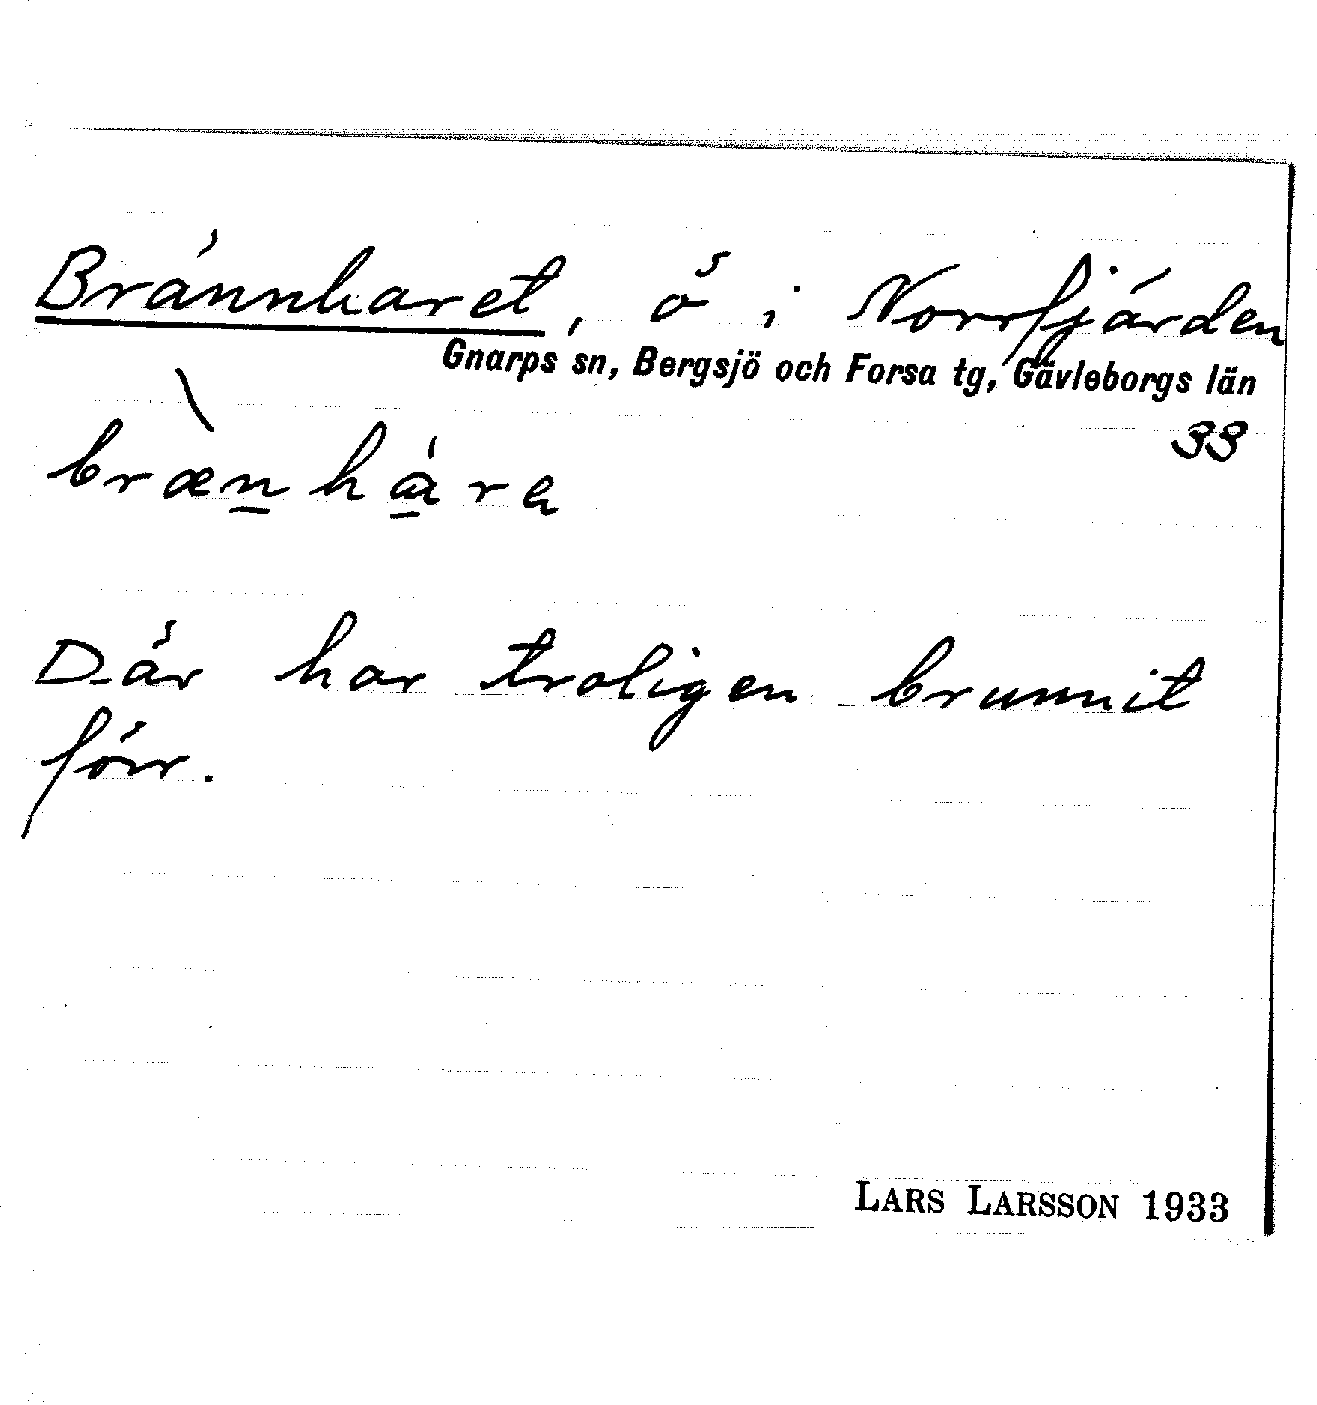 Brännharet, ö i Norrfjärden
Gnarps sn, Bergsjö och Forsa tg, Gävleborgs län
33
bræ̀n̲há̲ra
Där har troligen brunnit
förr.
LARS LARSSON 1933